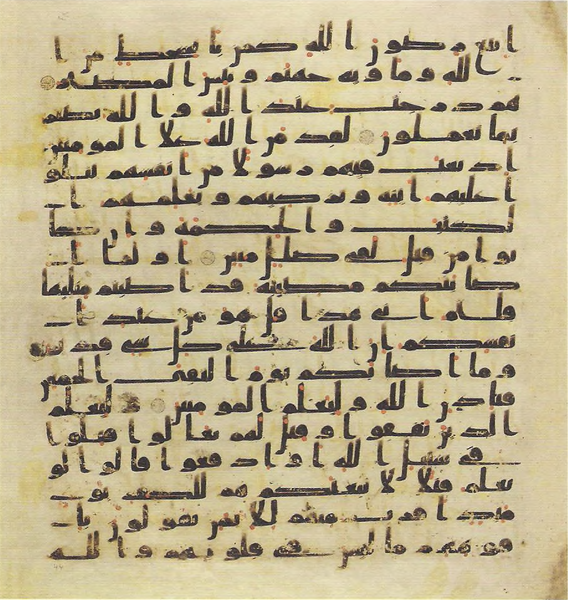 اتبع رضون الله كمن با بسخط من ا
لله وماويه جهنم وبيس المصير
هم درجت عند الله والله بصير
بما يعملون لقد من الله علا المومنين
اذ بعث فيهم رسولا من انفسهم يتلو
ا عليهم ايته ويزكيهم ويعلمهم ا
لكتب والحكمة وان كا
نوا من قبل لفى ضلل مبين اولما ا
صابتكم مصيبة قد اصبتم مثليها
قلتم انى هذا قل هو من عند ا
نفسكم ان الله على كل شى قدير
وما اصابكم يوم التقى الجمعن
فباذن الله وليعلم المومنين وليعلم
الذين نفقوا وقيل لهم تعالوا قتلوا
فى سبيل الله او ادفعوا قالوا لو
نعلم قتلا لاتبعنكم هم للكفر يو
ميذ اقرب منهم للايمن يقولون با
فوههم ما ليس فى قلوبهم والله